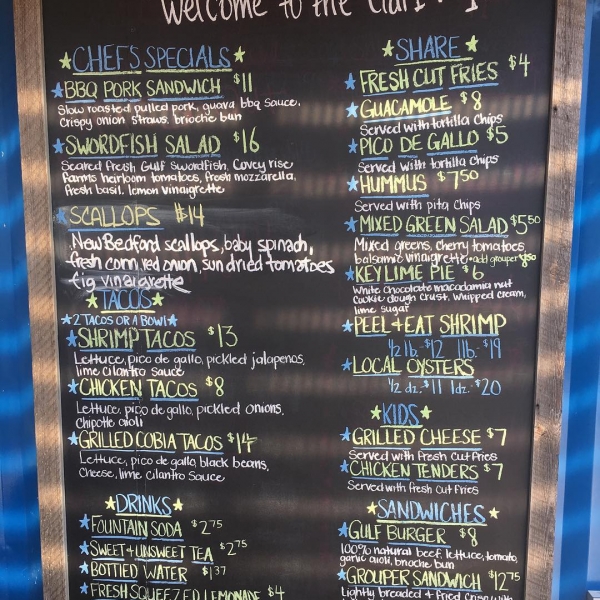 Welcome to the
CHEF'S SPECIALS
BBQ PORK SANDWICH $11
Slow roasted pulled pork, guava bbq sauce,
Crispy onion straws, brioche bun
SWORDFISH SALAD $16
Seared fresh Gulf Swordfish, Covey rise
farms heirloom tomatoes, fresh mozzarella,
fresh basil, lemon vinaigrette
SCALLOPS $14
New Bedford scallops, baby spinach,
fresh corn, red onion, sun dried tomatoes
fig vinaigrette
TACOS
2 TACOS OR A BOWL
SHRIMP TACOS $13
Lettuce, pico de gallo, pickled jalapenos,
lime cilantro sauce
CHICKEN TACOS $8
Lettuce, pico de gallo, pickled onions,
Chipotle aioli
GRILLED COBIA TACOS $14
Lettuce, pico de gallo, black beans,
Cheese, lime cilantro Sauce
DRINKS
FOUNTAIN SODA $2.75
SWEET + UNSWEET TEA $2.75
BOTTLED WATER $1.37
FRESH SQUEEZED LEMONADE $4
SHARE
FRESH CUT FRIES $4
GUACAMOLE $8
Served with tortilla Chips
PICO DE GALLO $5
Served with tortilla Chips
HUMMUS $7.50
Served with pita Chips
MIXED GREEN SALAD $5.50
Mixed greens, cherry tomatoes,
balsamic vinaigrette • add grouper $8.50
KEY LIME PIE $6
White Chocolate macadamia nut
Cookie dough Crust, Whipped Cream,
lime Sugar
PEEL + EAT SHRIMP
1/2 lb. $12 1lb. $19
LOCAL OYSTERS
1/2 dz. $11 1dz. $20
KIDS
GRILLED CHEESE $7
Served with Fresh Cut Fries
CHICKEN TENDERS $7
Served with Fresh Cut Fries
SANDWICHES
GULF BURGER $8
100% natural beef, lettuce, tomato,
garlic aioli, brioche bun
GROUPER SANDWICH $12.75
Lightly breaded + fried Crisp with